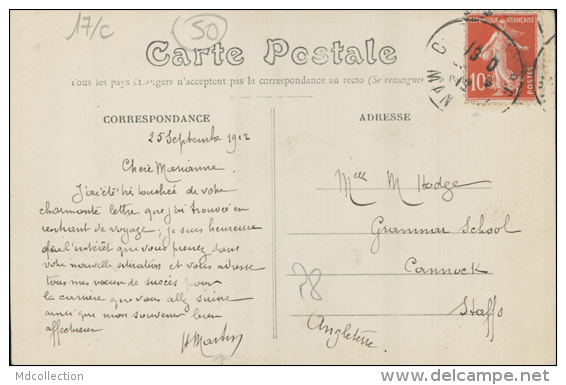 17/c
50
Carte Postale
Tous les pays étrangers n'acceptent pas la correspondance au recto (Se renseigner
CORRESPONDANCE
ADRESSE
RÉPUBLIQUE FRANÇAISE
10
POSTES
25 Septembre 1912
Chère Marianne.
J'ai été très touchée de votre
charmante lettre que j'ai trouvée en
rentrant de voyage; je suis heureuse
de l'intérêt que vous prenez dans
votre nouvelle situation et vous adresse
tous mes vœux de succès pour
la carrière que vous allez suivre
ainsi que mon souvenir bien
affectueux
H Martin
Melle M Hodge
Grammar School
Cannock
Staffs
Angleterre
78
Mdcollection
delcampe.net